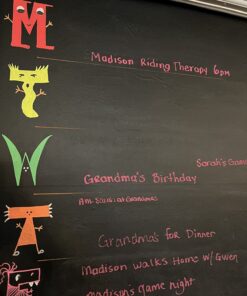 M
Madison Riding Therapy 6pm
T
W
Sarah's Game
Grandma's Birthday
T
Grandmas for Dinner
Madison walks Home w/ Gwen
madison's game night